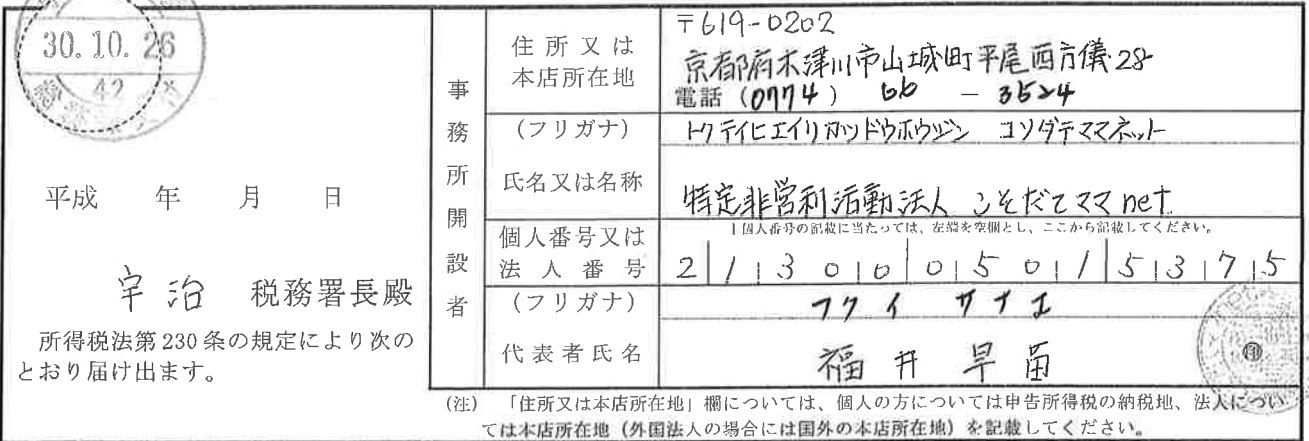 30.10.26
42
平成 年 月 日
宇治 税務署長殿
所得税法第230条の規定により次の
とおり届け出ます。
事務所開設者
住所又は
本店所在地
〒619-0202
京都府木津川市山城町平尾西方儀28
電話(0774) 66 - 3524
(フリガナ)
トクテイヒエイリカツドウホウジン コソダテママネット
氏名又は名称
特定非営利活動法人 こそだてママnet
↓個人番号の記載に当たっては、左端を空欄とし、ここから記載してください。
個人番号又は
法人番号
2130005015375
(フリガナ)
フクイ サナエ
代表者氏名
福井 早苗
㊞
(注) 「住所又は本店所在地」欄については、個人の方については申告所得税の納税地、法人につい
ては本店所在地(外国法人の場合には国外の本店所在地)を記載してください。